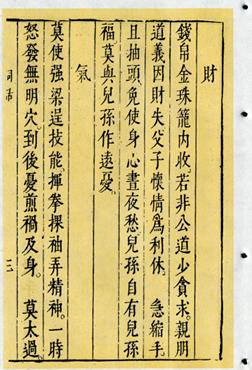 財
錢帛金珠籠內收。若非公道少貪求。親朋
道義因財失。父子懷情為利休。急縮手。
且抽頭。免使身心晝夜愁。兒孫自有兒孫
福。莫與兒孫作遠憂。
氣
莫使强梁逞技能。揮拳捰袖弄精神。一時
怒發無明穴。到後憂煎禍及身。莫太過。